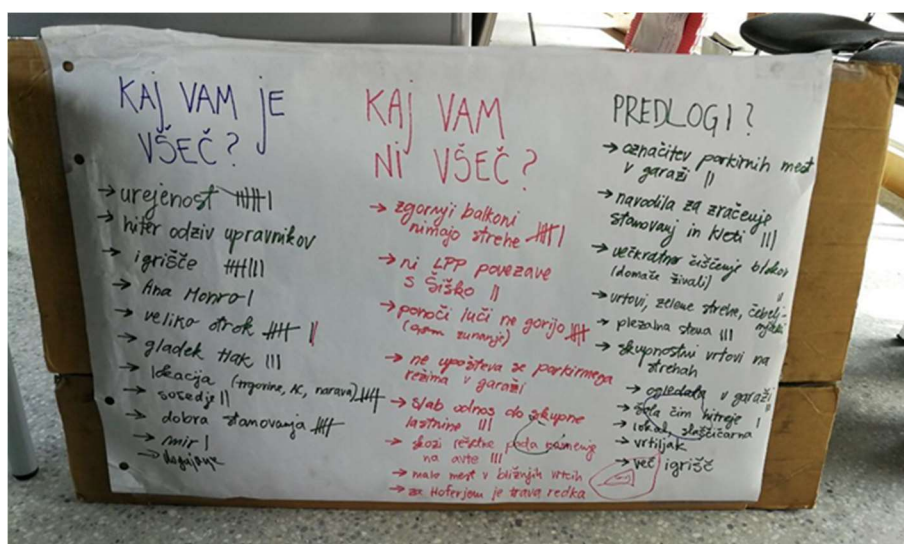 KAJ VAM JE
VŠEČ?
→ urejenost
→ hiter odziv upravnikov
→ igrišče
→ Ana Monro
→ veliko otrok
→ gladek tlak III
→ lokacija (trgovine, AC, narava)
→ sosedje II
→ dobra stanovanja
→ mir I
KAJ VAM
NI VŠEČ?
→ zgornji balkoni
nimajo strehe
→ ni LPP povezave
s Šiško II
→ ponoči luči ne gorijo
zunanje)
→ ne upošteva se parkirnega
režima v garaži
→ slab odnos do skupne
lastnine III
→ skozi rešetke pada
na avte III
→ malo mest v bližnjih vrtcih
→ za Hoferjem je trava redka
PREDLOGI?
→ označitev parkirnih mest
v garaži II
→ navodila za zračenje
stanovanj in kleti III
→ večkratno čiščenje blokov
(domače živali) II
→ vrtovi, zelene strehe,
→ plezalna stena III
→ skupnostni vrtovi na
strehah
→ ogledala v garaži II
→ šola čim hitreje I
→ lokal, slaščičarna
→ vrtiljak
→ več igrišč